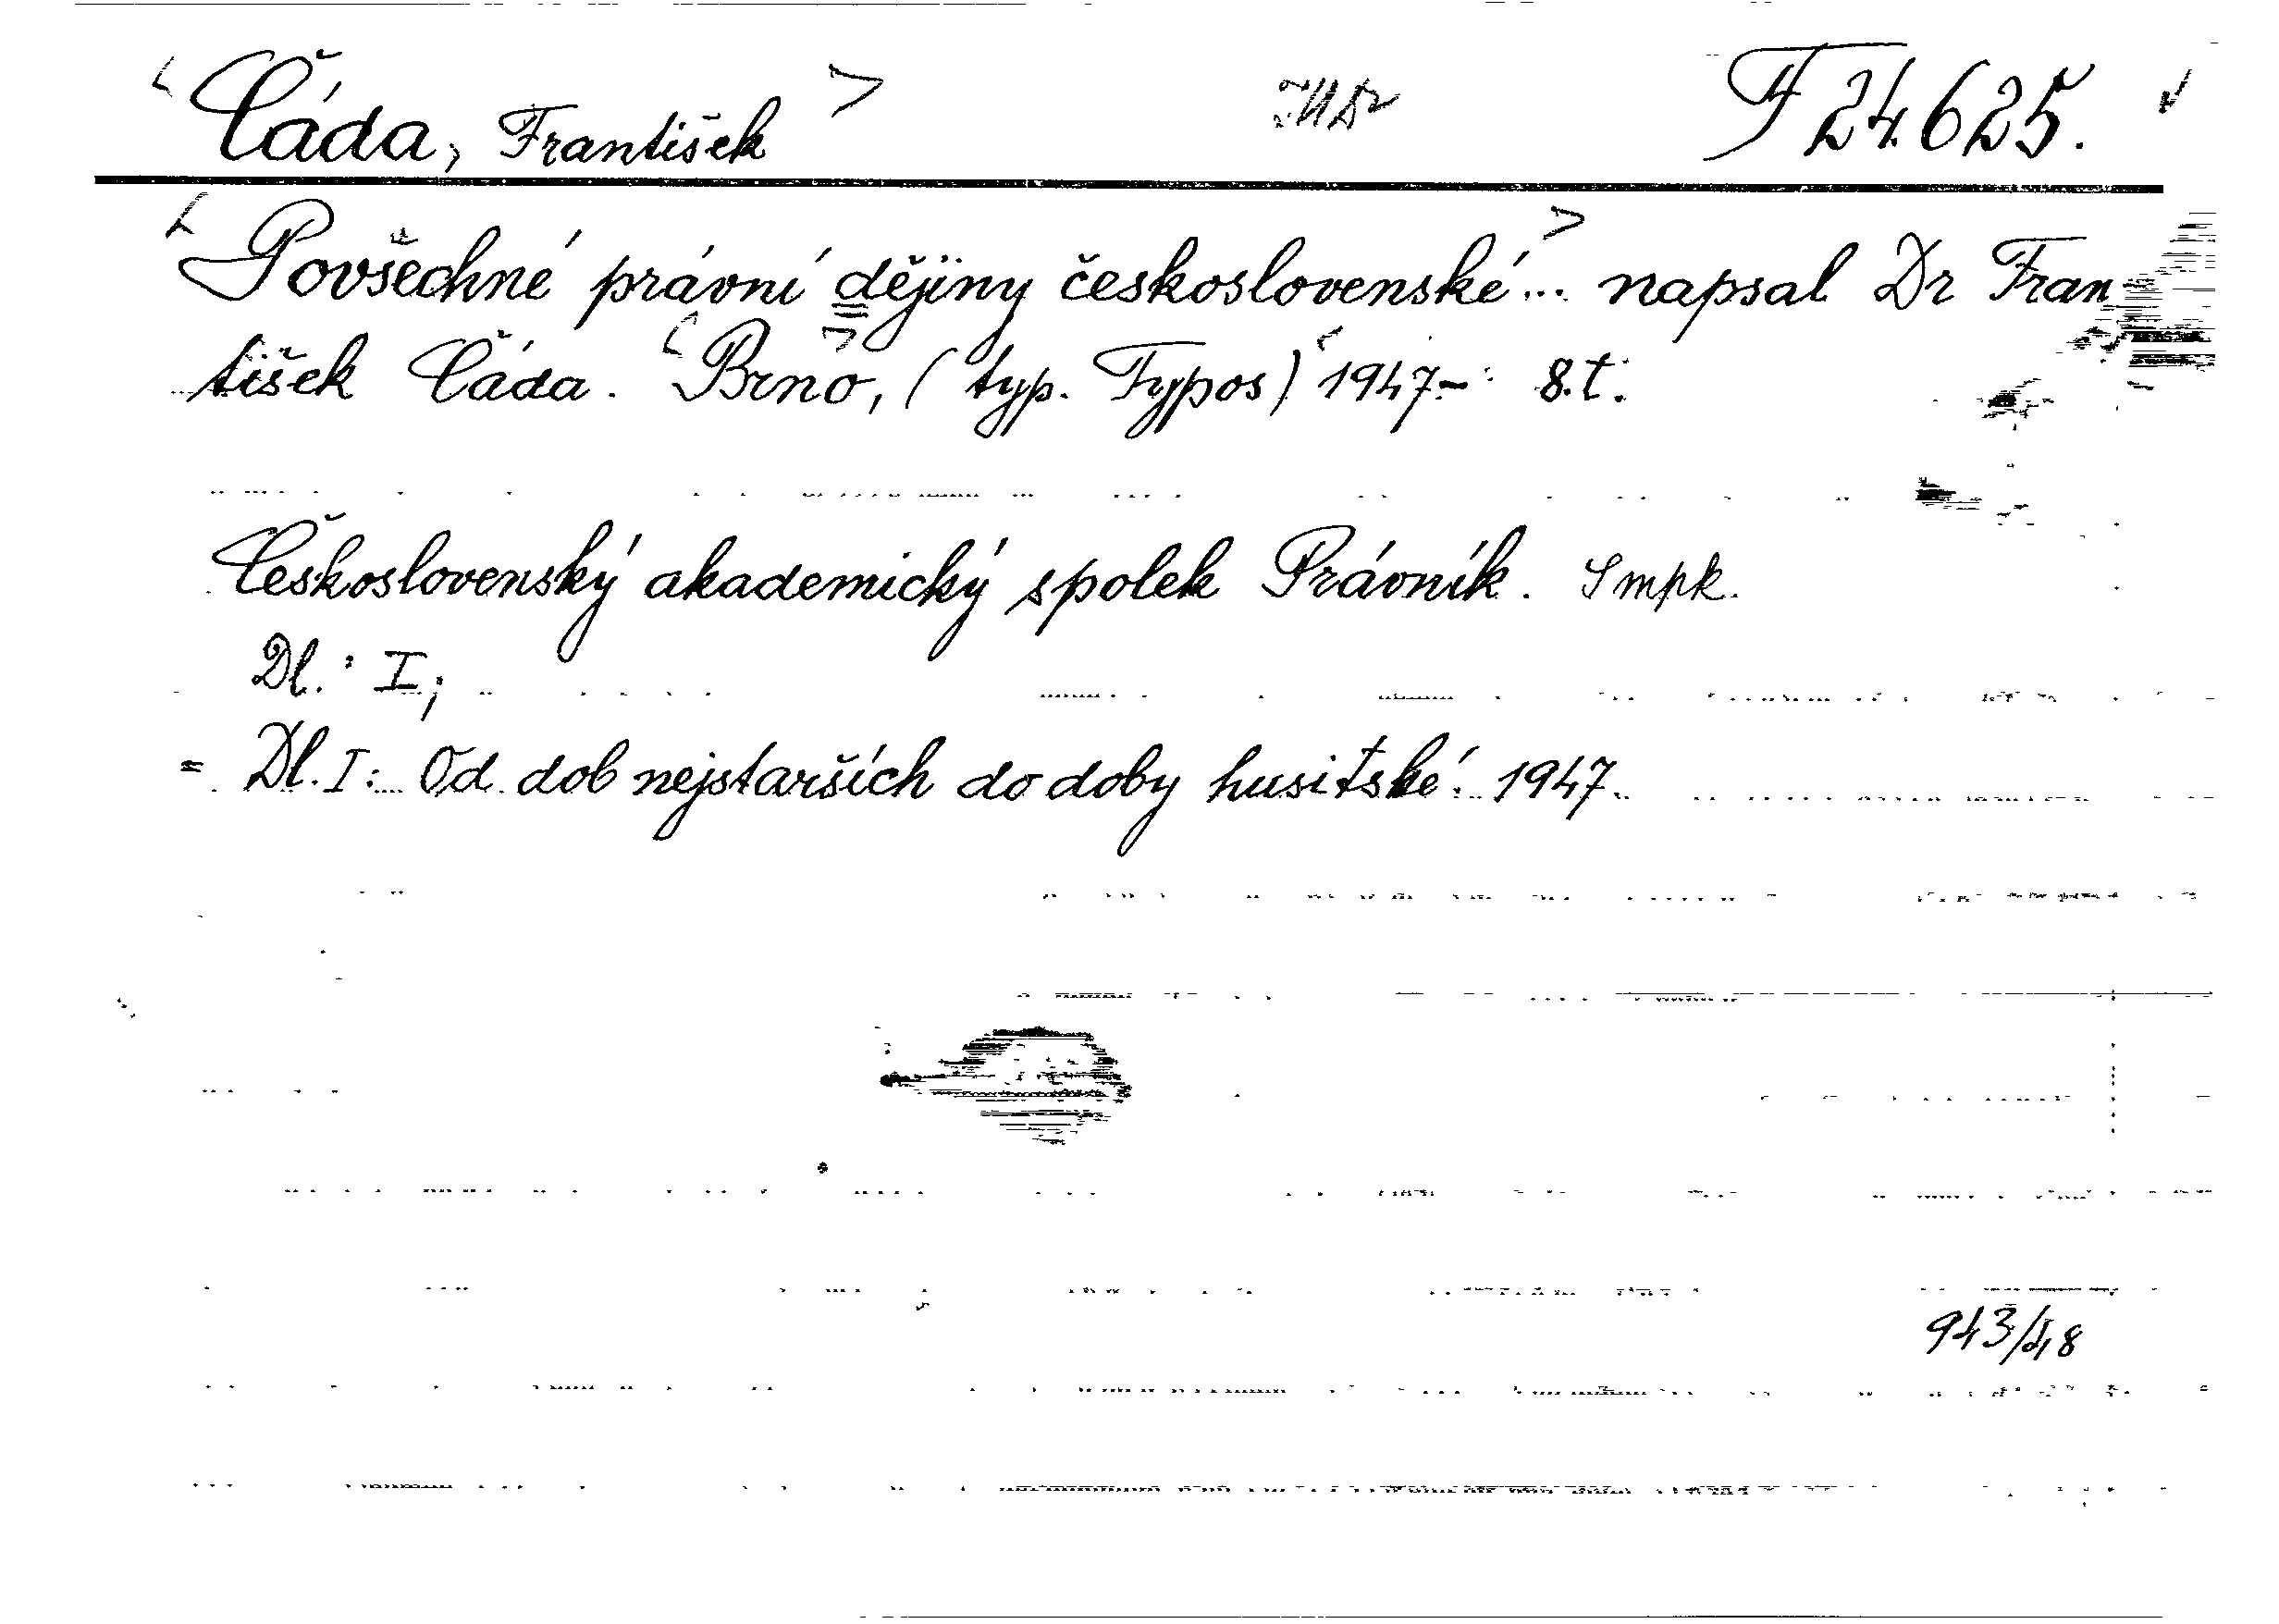 Čáda, František F 24625.
Povšechné právní dějiny československé... napsal Dr Fran
tišek Čáda. Brno, (typ. Typos) 1947- 8.t.
Československý akademický spolek Právník. Impk.
Dl.: I;
= Dl. I: Od dob nejstarších do doby husitské. 1947.
943/48